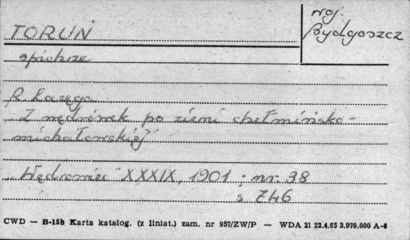 TORUŃ
woj.
Bydgoszcz
spichrze
R. Łazęga
"Z wędrówek po ziemi chełmińsko-
michałowskiej"
"Wędrowiec" XXXIX, 1901; nr. 38
s 746
CWD — B-15b Karta katalog. (z liniat.) zam. nr 957/ZW/P — WDA 21 22.4.65 2,070.000 A-6